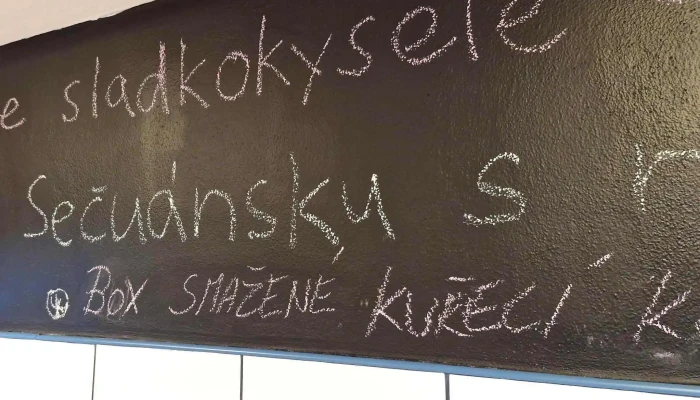 e sladkokysele
Sečuánsky s r
Box SMAŽENE KUŘECÍ K